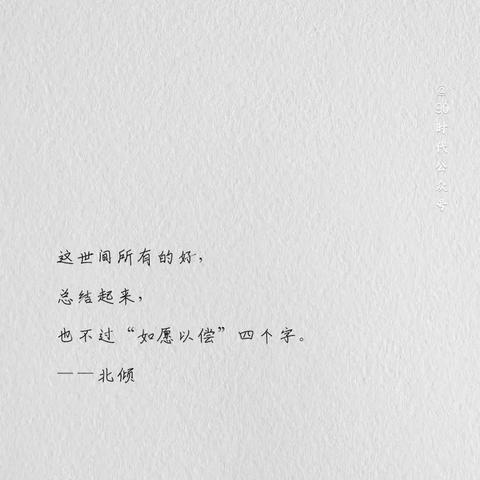 这世间所有的好，
总结起来，
也不过“如愿以偿”四个字。
——北倾
@90时代公众号